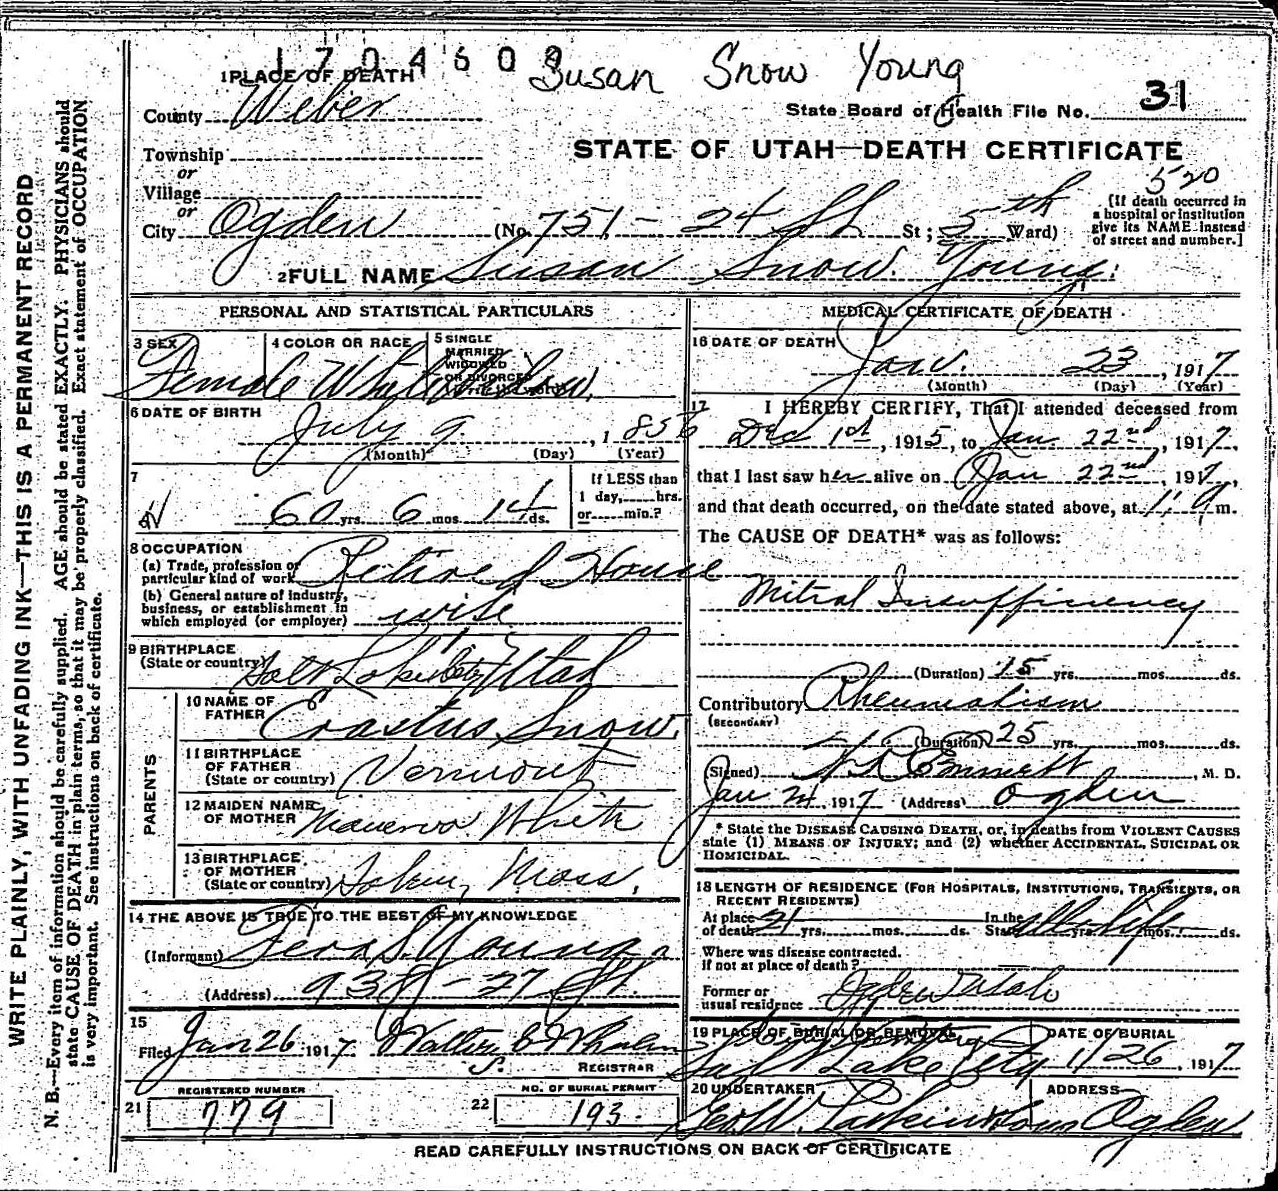 1704608
Susan Snow Young
1 PLACE OF DEATH
County Weber
State Board of Health File No. 31
Township
or
Village
or
STATE OF UTAH—DEATH CERTIFICATE
520
City Ogden (No. 751 - 24 St St; 5th Ward)
[If death occurred in
a hospital or institution
give its NAME instead
of street and number.]
2 FULL NAME Susan Snow Young
PERSONAL AND STATISTICAL PARTICULARS
3 SEX
Female
4 COLOR OR RACE
White
5 SINGLE
MARRIED
WIDOWED
OR DIVORCED
6 DATE OF BIRTH
July 9, 1856
(Month) (Day) (Year)
7
60 yrs. 6 mos. 14 ds.
If LESS than
1 day, hrs.
or min.?
8 OCCUPATION
(a) Trade, profession or
particular kind of work Retired House
(b) General nature of industry,
business, or establishment in
which employed (or employer) wife
9 BIRTHPLACE
(State or country) Salt Lake City Utah
PARENTS
10 NAME OF
FATHER Erastus Snow
11 BIRTHPLACE
OF FATHER
(State or country) Vermont
12 MAIDEN NAME
OF MOTHER Minerva White
13 BIRTHPLACE
OF MOTHER
(State or country) Salem, Mass.
14 THE ABOVE IS TRUE TO THE BEST OF MY KNOWLEDGE
(Informant) S. Young
(Address) 938 - 27 St.
15
Filed Jan 26 1917 Walter Whalen
REGISTRAR
REGISTERED NUMBER
21 779
NO. OF BURIAL PERMIT
22 193
MEDICAL CERTIFICATE OF DEATH
16 DATE OF DEATH
Jan. 23, 1917
(Month) (Day) (Year)
17 I HEREBY CERTIFY, That I attended deceased from
Dec 1st, 1915, to Jan 22nd, 1917,
that I last saw her alive on Jan 22nd, 1917,
and that death occurred, on the date stated above, at m.
The CAUSE OF DEATH* was as follows:
Mitral Insufficiency
(Duration) 15 yrs. mos. ds.
Contributory Rheumatism
(SECONDARY)
(Duration) 25 yrs. mos. ds.
(Signed) Emmett, M. D.
Jan 24, 1917 (Address) Ogden
* State the DISEASE CAUSING DEATH, or, in deaths from VIOLENT CAUSES
state (1) MEANS OF INJURY; and (2) whether ACCIDENTAL, SUICIDAL OR
HOMICIDAL.
18 LENGTH OF RESIDENCE (FOR HOSPITALS, INSTITUTIONS, TRANSIENTS, OR
RECENT RESIDENTS)
At place
of death 21 yrs. mos. ds. In the
State All life yrs. mos. ds.
Where was disease contracted.
if not at place of death?
Former or
usual residence Ogden Utah
19 PLACE OF BURIAL OR REMOVAL
Salt Lake City
DATE OF BURIAL
1/26, 1917
20 UNDERTAKER
Geo W. Larkin & Sons
ADDRESS
Ogden
READ CAREFULLY INSTRUCTIONS ON BACK OF CERTIFICATE
WRITE PLAINLY, WITH UNFADING INK—THIS IS A PERMANENT RECORD
N. B.—Every item of information should be carefully supplied. AGE should be stated EXACTLY. PHYSICIANS should
state CAUSE OF DEATH in plain terms, so that it may be properly classified. Exact statement of OCCUPATION
is very important. See instructions on back of certificate.